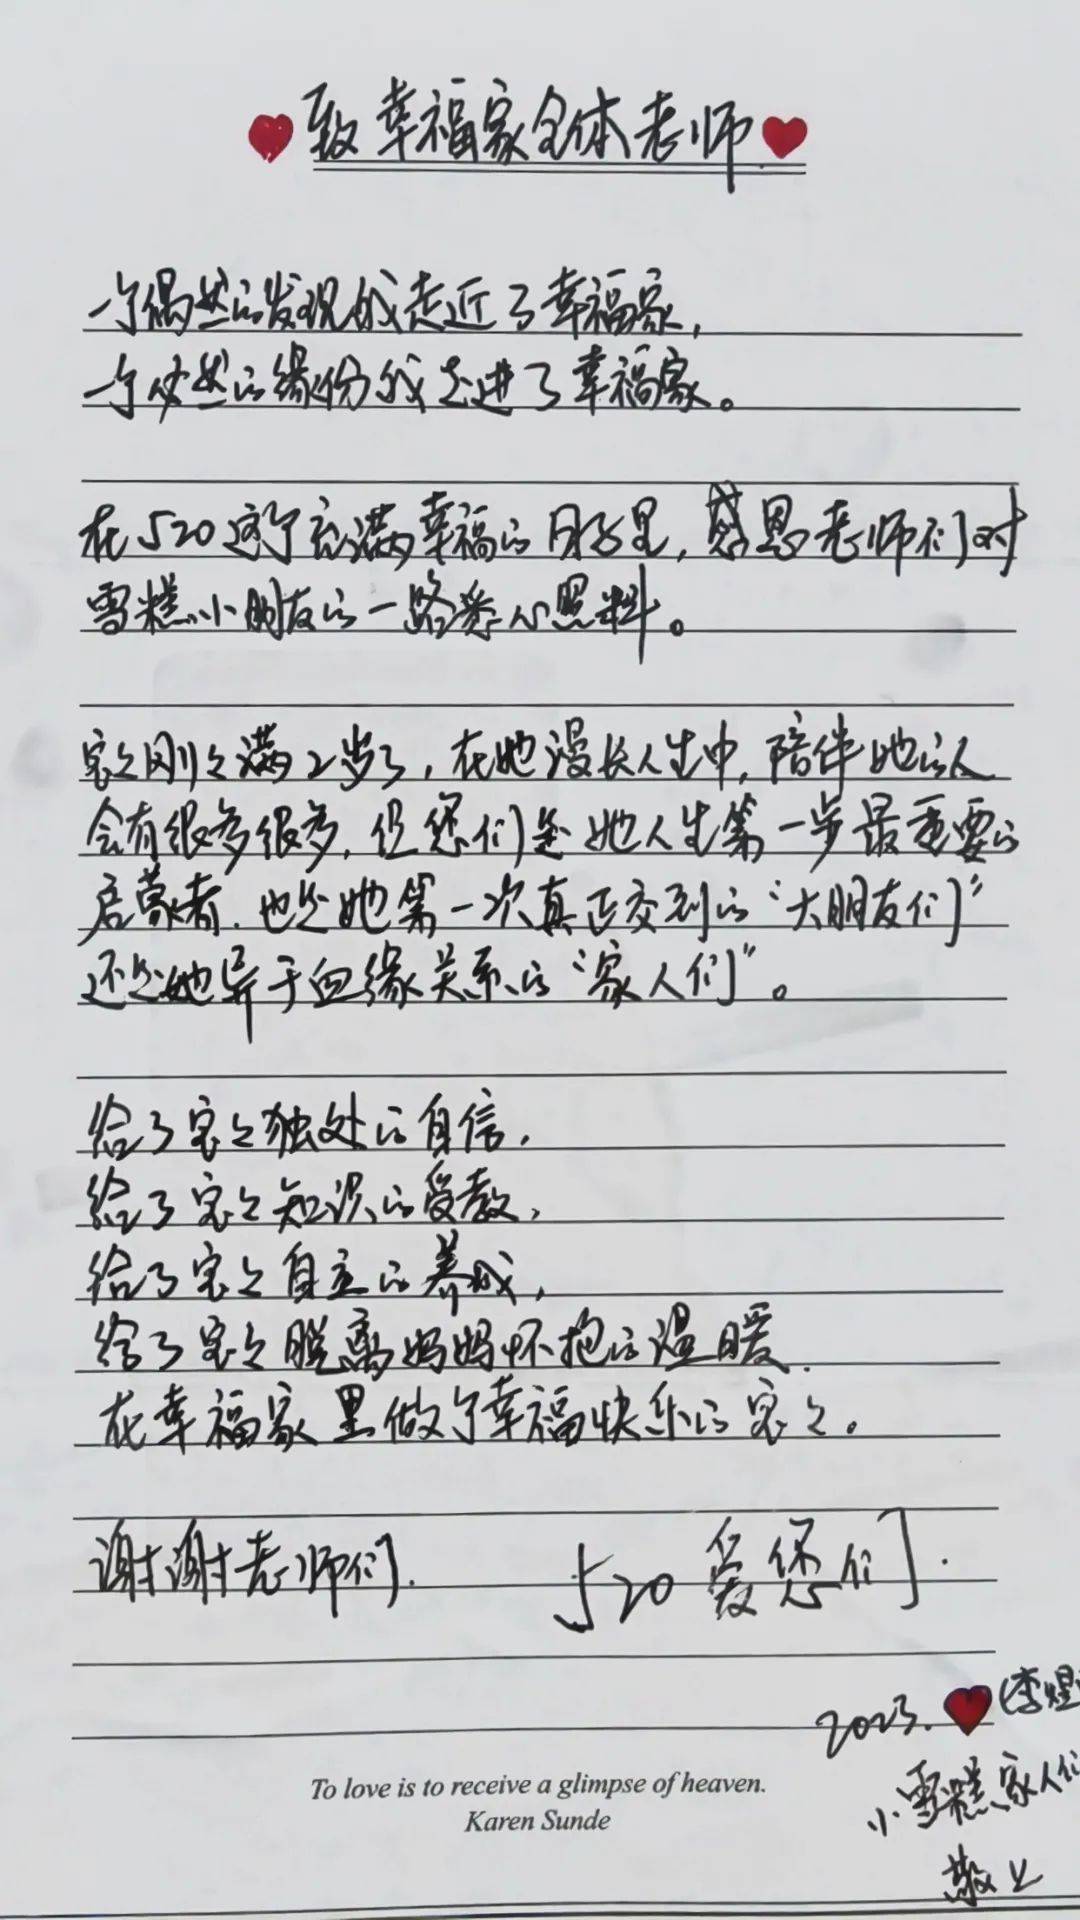 致幸福家全体老师
一个偶然的发现我走近了幸福家,
一个必然的缘份我走进了幸福家。
在520这个充满幸福的日子里,感恩老师们对
雪糕小朋友的一路悉心照料。
宝宝刚刚满2岁了,在她漫长人生中,陪伴她的人
会有很多很多,但您们是她人生第一步最重要的
启蒙者.也是她第一次真正交到的“大朋友们”
还是她异于血缘关系的“家人们”。
给了宝宝独处的自信,
给了宝宝知识的受教,
给了宝宝自立的养成,
给了宝宝脱离妈妈怀抱的温暖.
在幸福家里做个幸福快乐的宝宝。
谢谢老师们.
520爱您们.
2023. (李煜
小雪糕家人们
敬上
To love is to receive a glimpse of heaven.
Karen Sunde